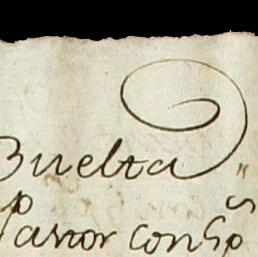 Buelta "
Pastor con Sp